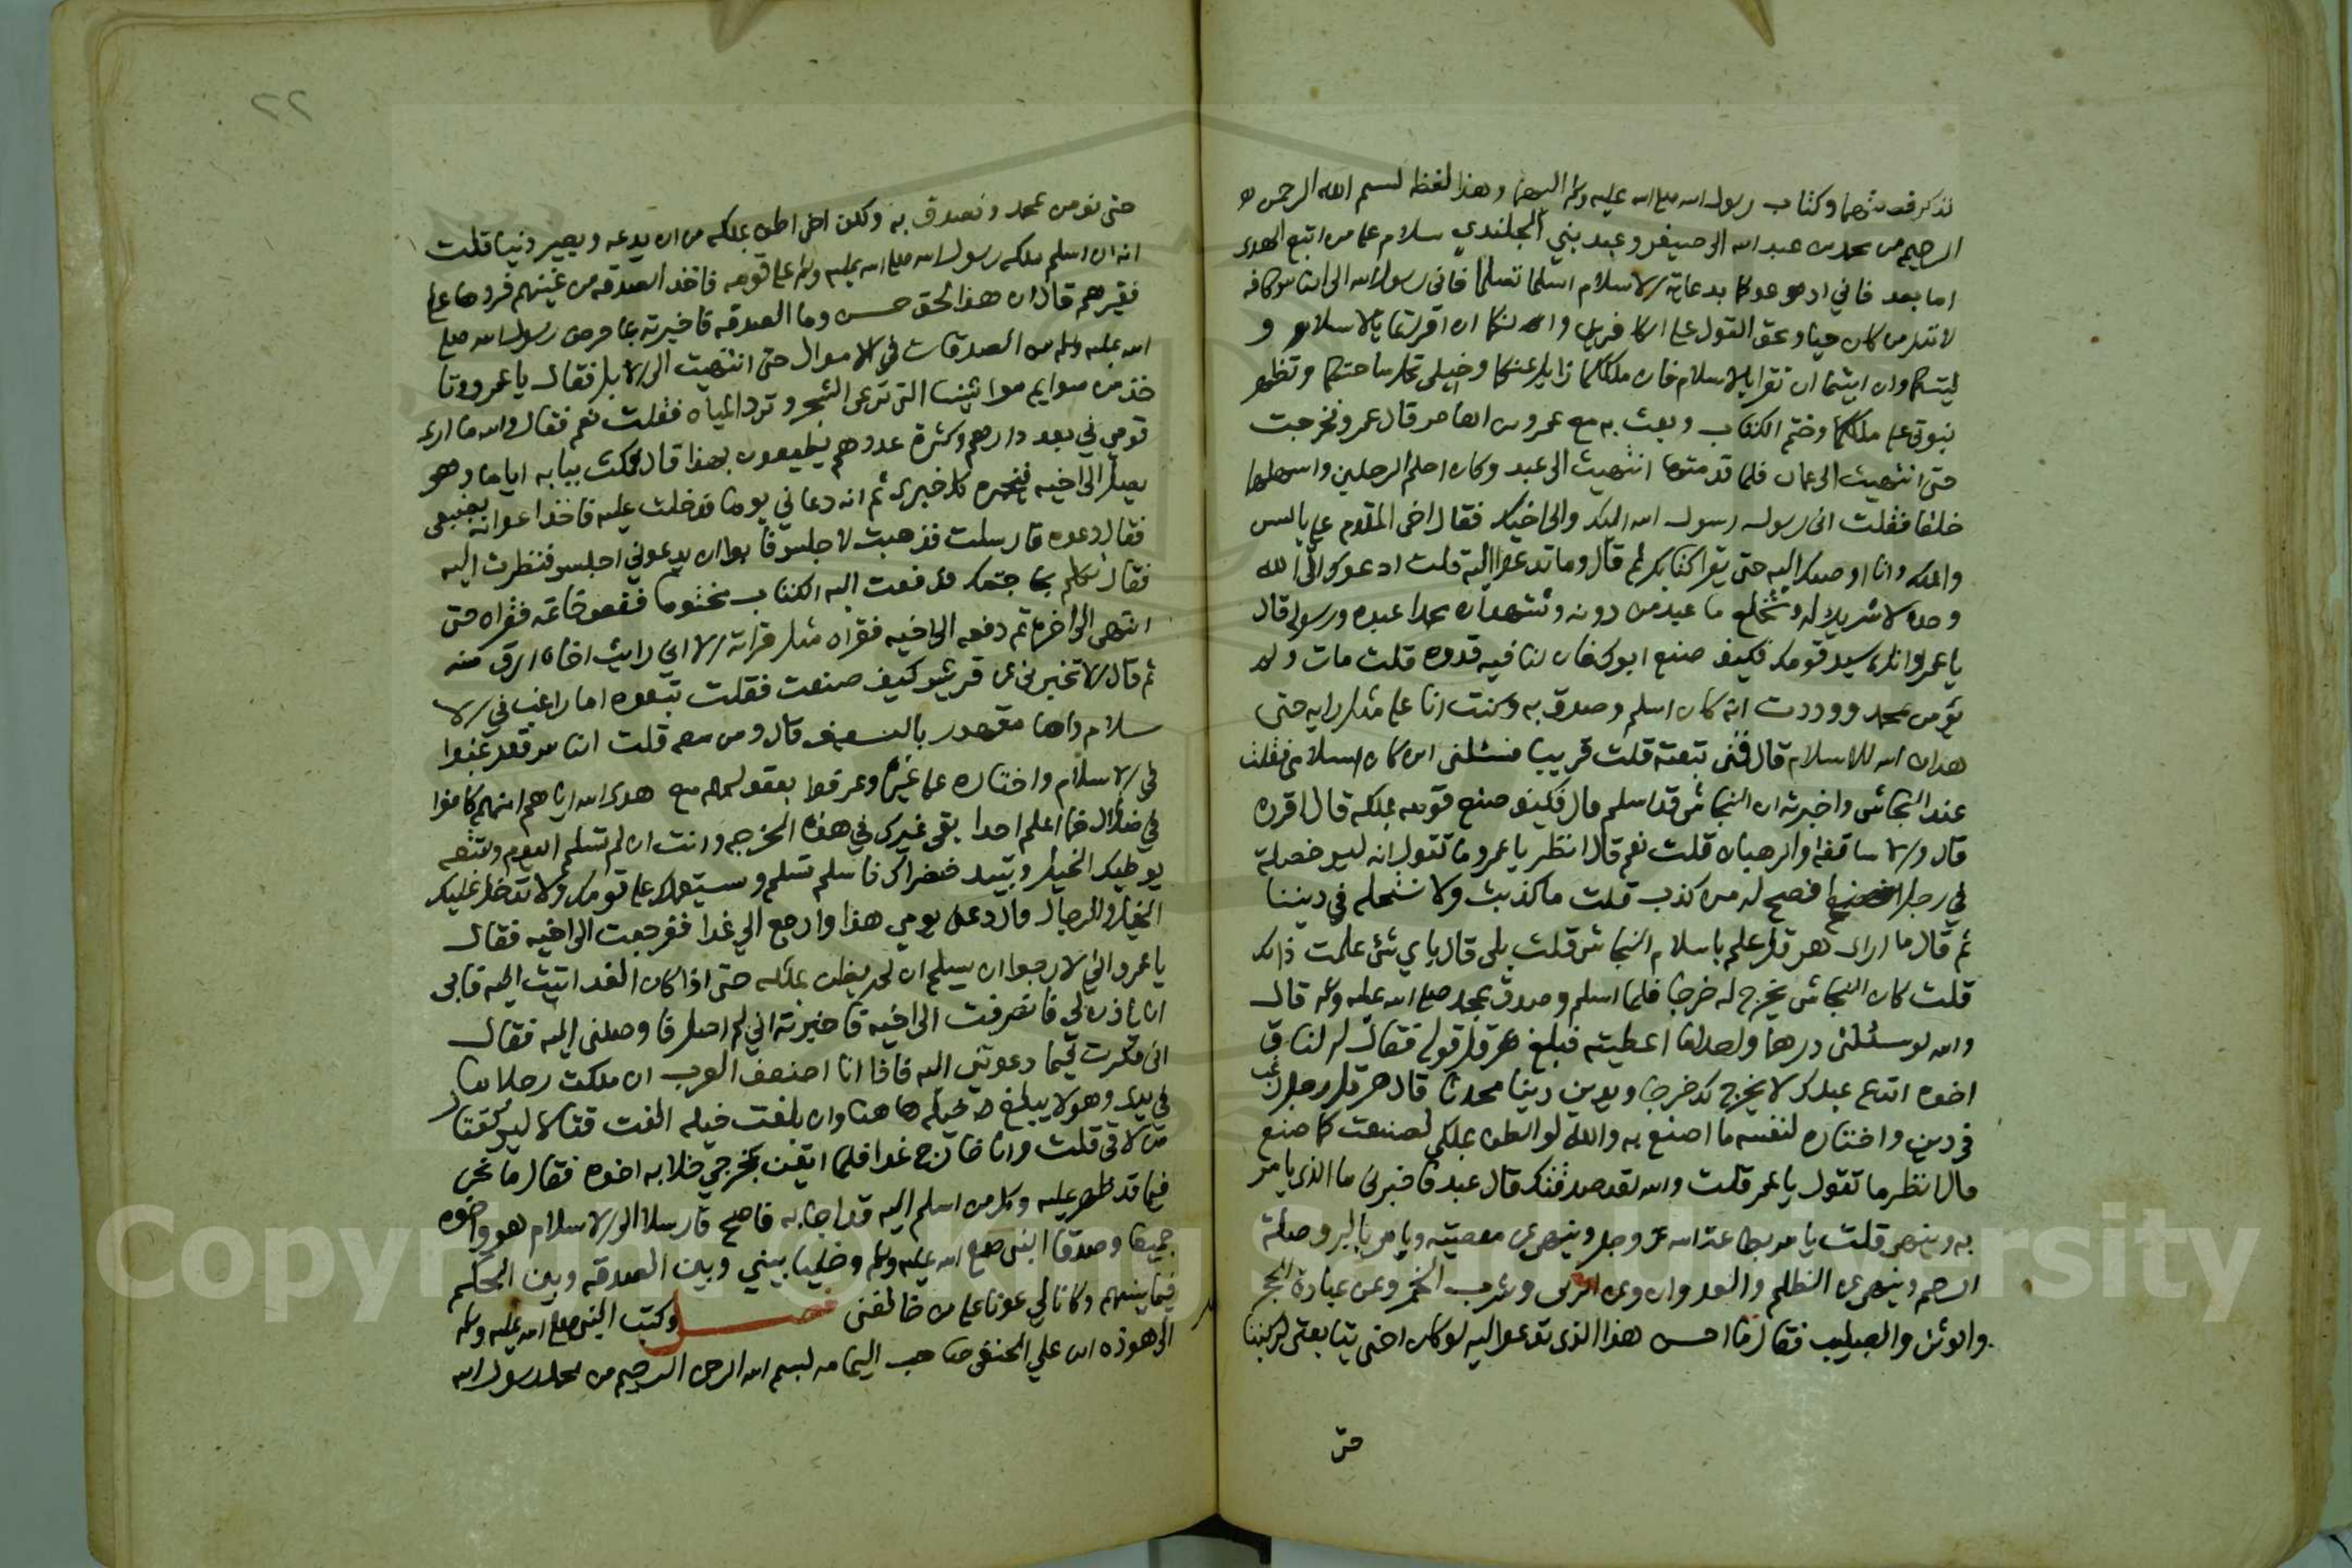 نذكر قصتهما وكتاب رسول الله صلى الله عليه وسلم اليهما وهذا لفظه بسم الله الرحمن
الرحيم من محمد بن عبد الله الى جيفر وعبد بني الجلندي سلام على من اتبع الهدى
اما بعد فاني ادعوكما بدعاية الاسلام اسلما تسلما فاني رسول الله الى الناس كافه
لانذر من كان حيا ويحق القول على الكافرين وانكما ان اقرتما بالاسلام و
ليتكما وان ابيتما ان تقرا بالاسلام فان ملككما زايل عنكما وخيلي تحل ساحتكما وتظهر
نبوتي على ملككما وختم الكتاب وبعث به مع عمرو بن العاص قال عمرو فخرجت
حتى انتهيت الى عمان فلما قدمتها انتهيت الى عبد وكان احلم الرجلين واسهلهما
خلقا فقلت اني رسول رسول الله اليك والى اخيك فقال اخي المقدم علي بالسن
والملك وانا اوصلك اليه حتى يقرا كتابك ثم قال وما تدعوا اليه قلت ادعوك الى الله
وحده لا شريك له وتخلع ما عبد من دونه وتشهد ان محمدا عبده ورسوله قال
يا عمرو انك سيد قومك فكيف صنع ابوك فان لنا فيه قدوة قلت مات ولم
يؤمن بمحمد ووددت انه كان اسلم وصدق به وكنت انا على مثل رايه حتى
هداني الله للاسلام قال فمتى تبعته قلت قريبا فسئلني اين كان اسلامي فقلت
عند النجاشي واخبرته ان النجاشي قد اسلم قال فكيف صنع قومه بملكه قال اقروه
قال والاساقفه والرهبان قلت نعم قال انظر يا عمرو ما تقول انه ليس خصلة
في رجل افضح له من كذب قلت ما كذبت ولا نستحله في ديننا
ثم قال ما ارى هرقل علم باسلام النجاشي قلت بلى قال باي شئ علمت ذلك
قلت كان النجاشي يخرج له خرجا فلما اسلم وصدق بمحمد صلى الله عليه وسلم قال
والله لو سئلني درهما واحدا ما اعطيته فبلغ هرقل قوله فقال له
اخوه اتدع عبدك لا يخرج لك خرجا ويدين دينا محدثا قال هرقل رجل رغب
في دين واختاره لنفسه ما اصنع به والله لولا الظن بملكي لصنعت كما صنع
قال انظر ما تقول يا عمرو قلت والله لقد صدقتك قال عبد فاخبرني ما الذي يامر
به وينهى قلت يامر بطاعة الله عز وجل وينهى عن معصيته ويامر بالبر وصلة
الرحم وينهى عن الظلم والعدوان وعن الزنى وشرب الخمر وعن عبادة الحجر
والوثن والصليب فقال ما احسن هذا الذي تدعوا اليه لو كان اخي يتابعني لركبنا
حتى
٢٢
حتى نومن بمحمد ونصدق به ولكن اخي اظن بملكه من ان يدعه ويصير دنيا قلت
انه ان اسلم ملكه رسول الله صلى الله عليه وسلم على قومه فاخذ الصدقه من غنيهم فردها على
فقيرهم قال ان هذا لخلق حسن وما الصدقه فاخبرته بما فرض رسول الله صلى
الله عليه وسلم من الصدقات في الاموال حتى انتهيت الى الابل فقال يا عمرو وتا
خذ من سوايم مواشينا التي ترعى الشجر وترد المياه فقلت نعم فقال والله ما ارى
قومي في بعد دارهم وكثرة عددهم يطيعون بهذا قال فمكثت ببابه اياما وهو
يصل الى اخيه فيخبره كل خبري ثم انه دعاني يوما فدخلت عليه فاخذ اعوانه بضبعي
فقال دعوه فارسلت فذهبت لاجلس فابوا ان يدعوني اجلس فنظرت اليه
فقال تكلم بحاجتك فدفعت اليه الكتاب مختوما ففض خاتمه فقراه حتى
انتهى الى اخره ثم دفعه الى اخيه فقراه مثل قراته الا اني رايت اخاه ارق منه
ثم قال الا تخبرني عن قريش كيف صنعت فقلت تبعوه اما راغب في الا
سلام واما مقهور بالسيف قال ومن معه قلت الناس قد رغبوا
في الاسلام واختاره على غيره وعرفوا بعقولهم مع هدى الله اياهم انهم كانوا
في ضلال فما اعلم احدا بقي غيرك في هذه الخرجه وانت ان لم تسلم اليوم وتتبعه
يوطيك الخيل وتبيد خضراك فاسلم تسلم ويستعملك على قومك ولا تدخل عليك
الخيل والرجال قال دعني يومي هذا وارجع الي غدا فرجعت الى اخيه فقال
يا عمرو اني لارجوا ان يسلم ان لم يظن بملكه حتى اذا كان الغد اتيت اليه فابى
ان ياذن لي فانصرفت الى اخيه فاخبرته اني لم اصل فاوصلني اليه فقال
اني فكرت فيما دعوتني اليه فاذا انا اضعف العرب ان ملكت رجلا ما
في يدي وهو لا يبلغ خيله هاهنا وان بلغت خيله الفت قتالا ليس كقتال
من لاقى قلت وانا خارج غدا فلما ايقن بمخرجي خلا به اخوه فقال ما نحن
فيما قد ظهر عليه وكل من ارسل اليه قد اجابه فاصبح فارسل الى الاسلام هو واخوه
جميعا وصدقا النبي صلى الله عليه وسلم وخليا بيني وبين الصدقه وبين الحكم
فيما بينهم وكانا لي عونا على من خالفني فصل وكتب النبي صلى الله عليه وسلم
الى هوذه ابن علي الحنفي صاحب اليمامه بسم الله الرحمن الرحيم من محمد رسول الله